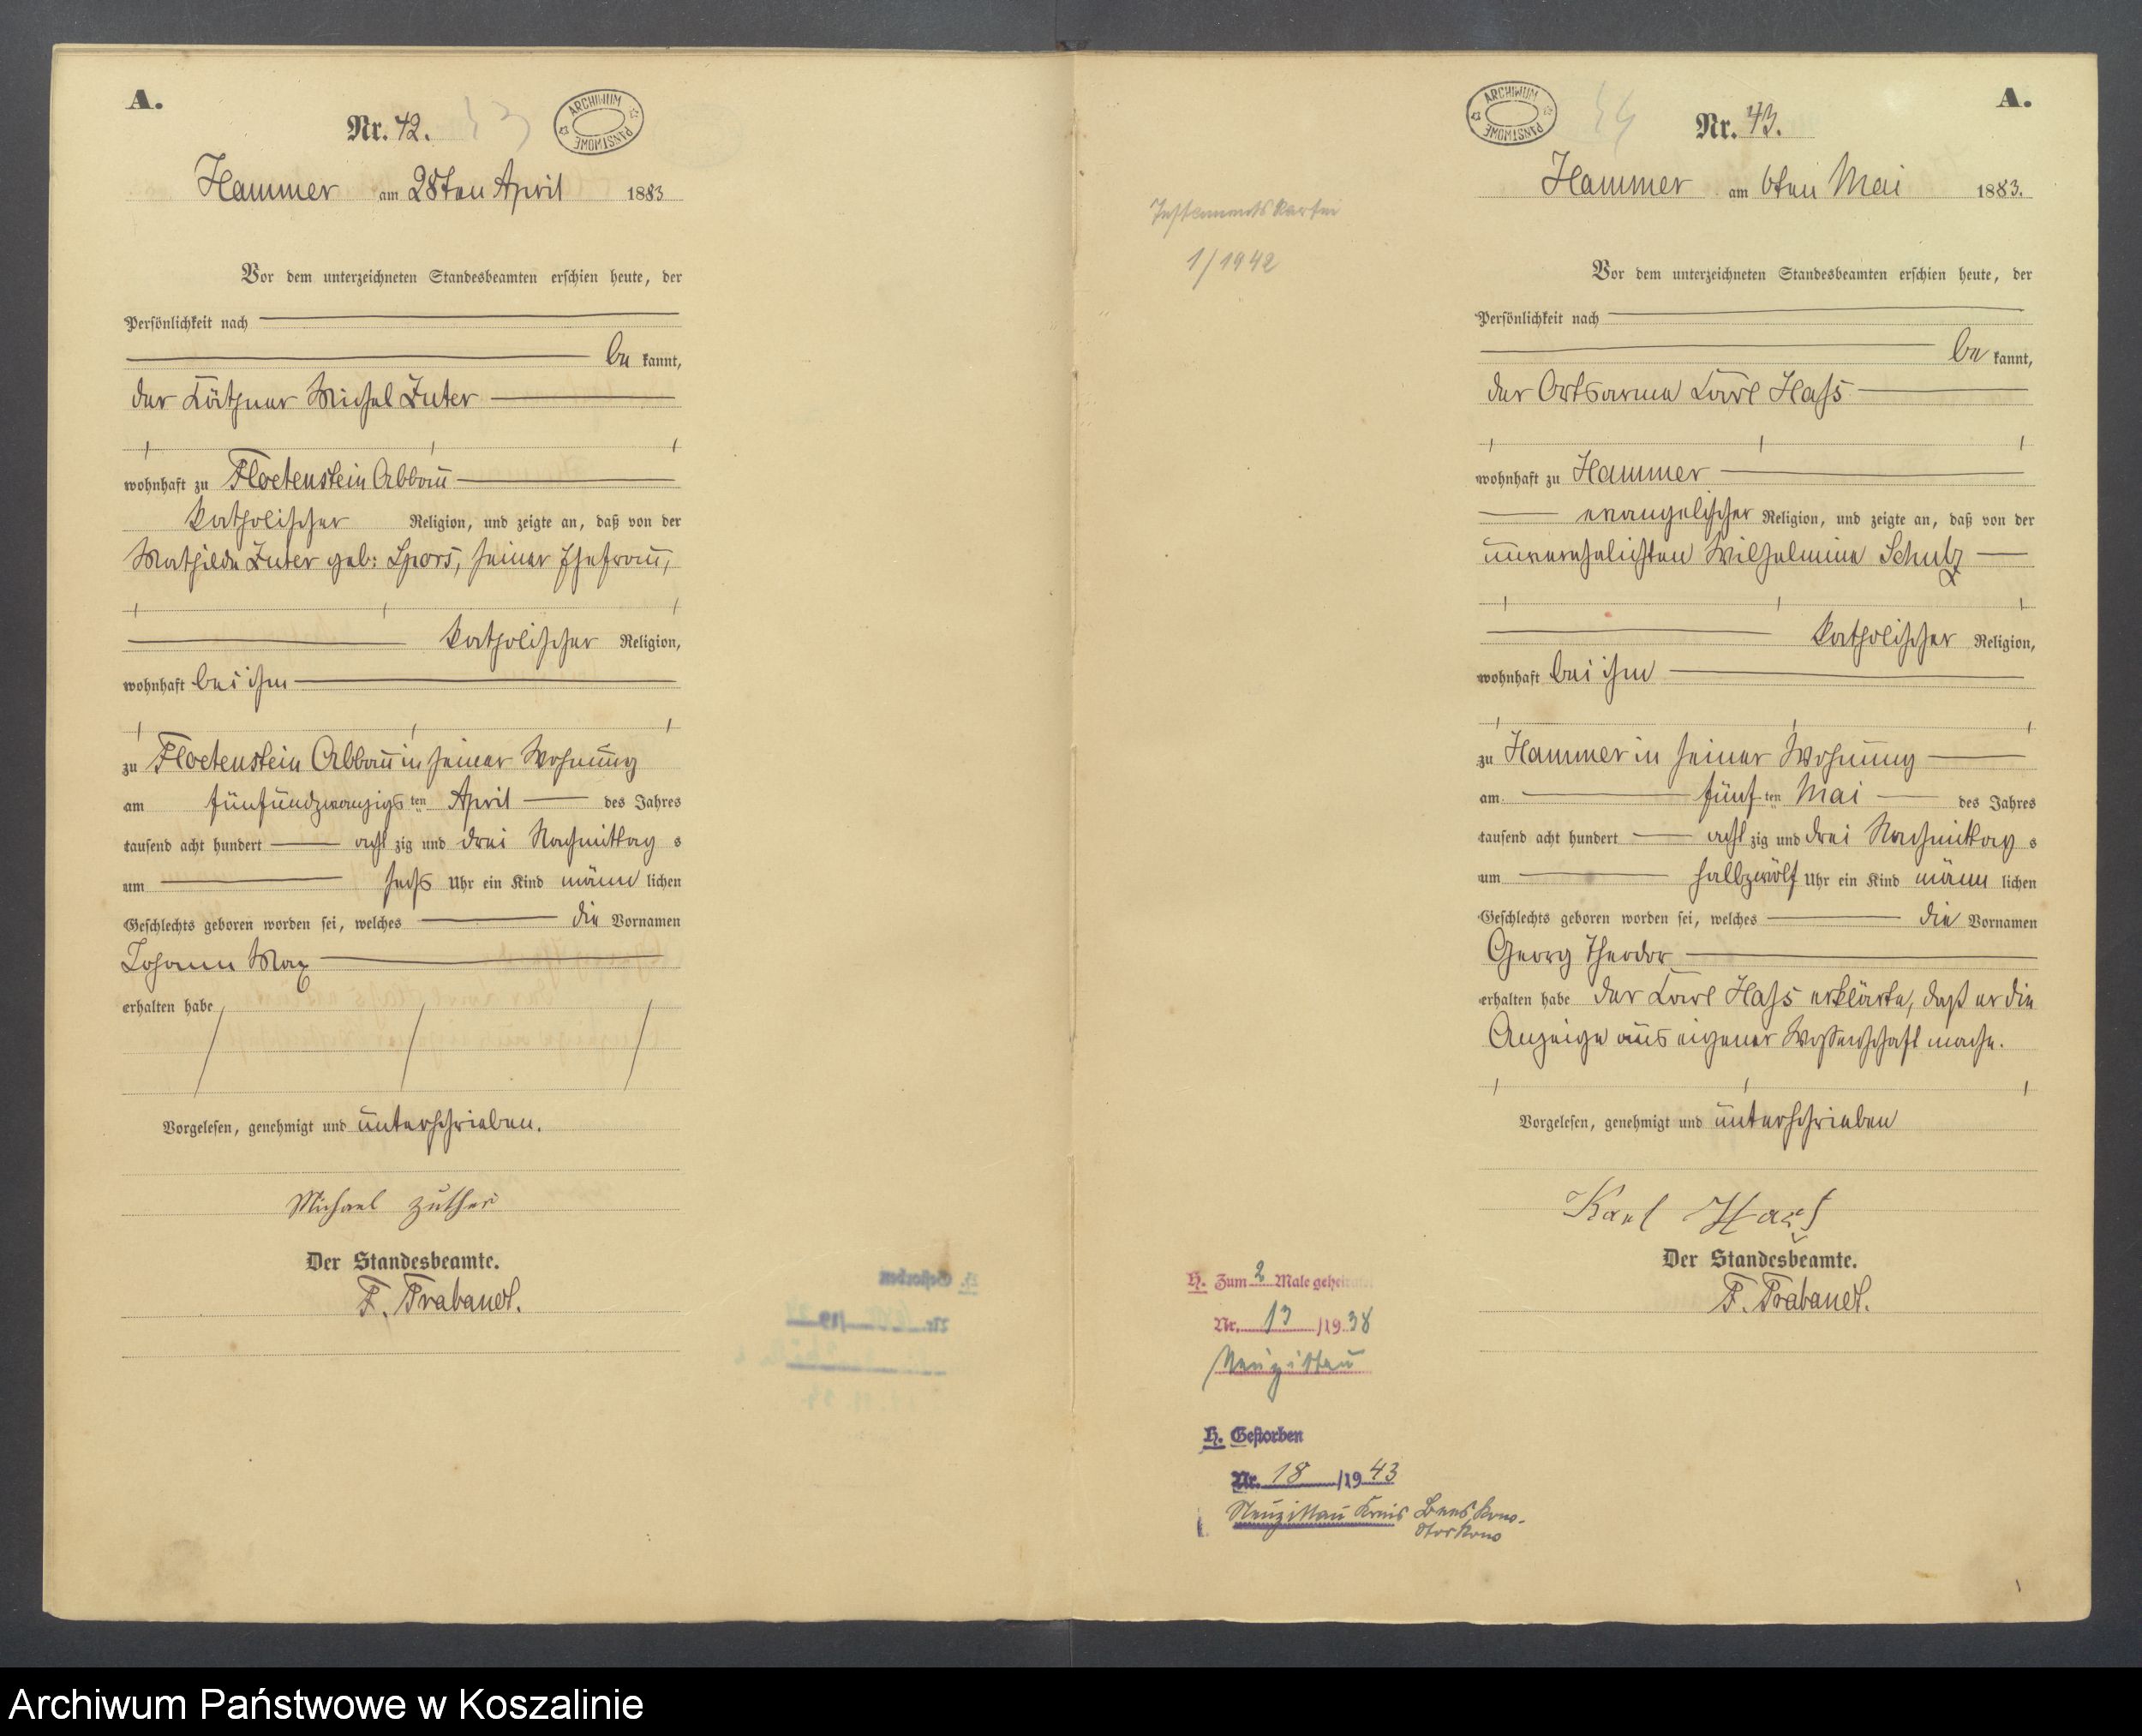 A.
Nr. 42.
ARCHIWUM PAŃSTWOWE
Hammer am 28ten April 1883
Vor dem unterzeichneten Standesbeamten erschien heute, der
Persönlichkeit nach
be kannt,
der Käthner Michel Zuter
wohnhaft zu Floetenstein Abbau
katholischer Religion, und zeigte an, daß von der
Mathilde Zuter geb: Spors, seiner Ehefrau,
katholischer Religion,
wohnhaft bei ihm
zu Floetenstein Abbau in seiner Wohnung
am fünfundzwanzigs ten April des Jahres
tausend acht hundert acht zig und drei Nachmittag s
um sechs Uhr ein Kind männ lichen
Geschlechts geboren worden sei, welches die Vornamen
Johann Max
erhalten habe
Vorgelesen, genehmigt und unterschrieben.
Michael Zuther
Der Standesbeamte.
F. Trabandt.
A.
ARCHIWUM PAŃSTWOWE
44
Nr. 43.
Hammer am 6ten Mai 1883.
1/1942
Vor dem unterzeichneten Standesbeamten erschien heute, der
Persönlichkeit nach
be kannt,
der Ortsarme Karl Haß
wohnhaft zu Hammer
evangelischer Religion, und zeigte an, daß von der
unverehelichten Wilhelmine Schulz
katholischer Religion,
wohnhaft bei ihm
zu Hammer in seiner Wohnung
am fünf ten Mai des Jahres
tausend acht hundert acht zig und drei Nachmittag s
um halbzwölf Uhr ein Kind männ lichen
Geschlechts geboren worden sei, welches die Vornamen
Georg Theodor
erhalten habe der Karl Haß erklärte, daß er die
Anzeige aus eigener Wissenschaft mache.
Vorgelesen, genehmigt und unterschrieben
Karl Haß
Der Standesbeamte.
F. Trabandt.
H. Zum 2 Male geheiratet
Nr. 13 /19 38
Neuzittau
H. Gestorben
Nr. 18 /19 43
Neuzittau Kreis Beeskow-
Storkow
Archiwum Państwowe w Koszalinie